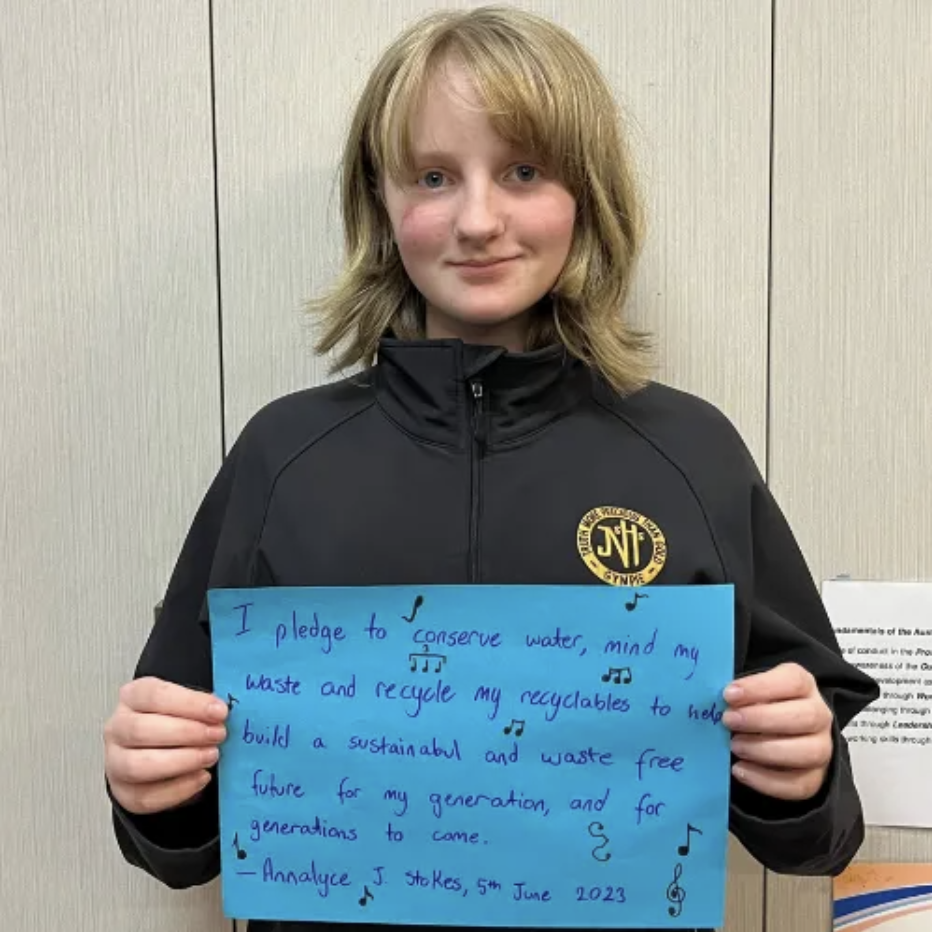 TRUTH MORE PRECIOUS THAN GOLD
NSHS
GYMPIE
I pledge to conserve water, mind my
waste and recycle my recyclables to help
build a sustainabul and waste free
future for my generation, and for
generations to come.
— Annalyce J. Stokes, 5th June 2023
3
ndamentals of the Aust
of conduct in the
awareness of the
development
through
nging through
through Leadersh
working skills through